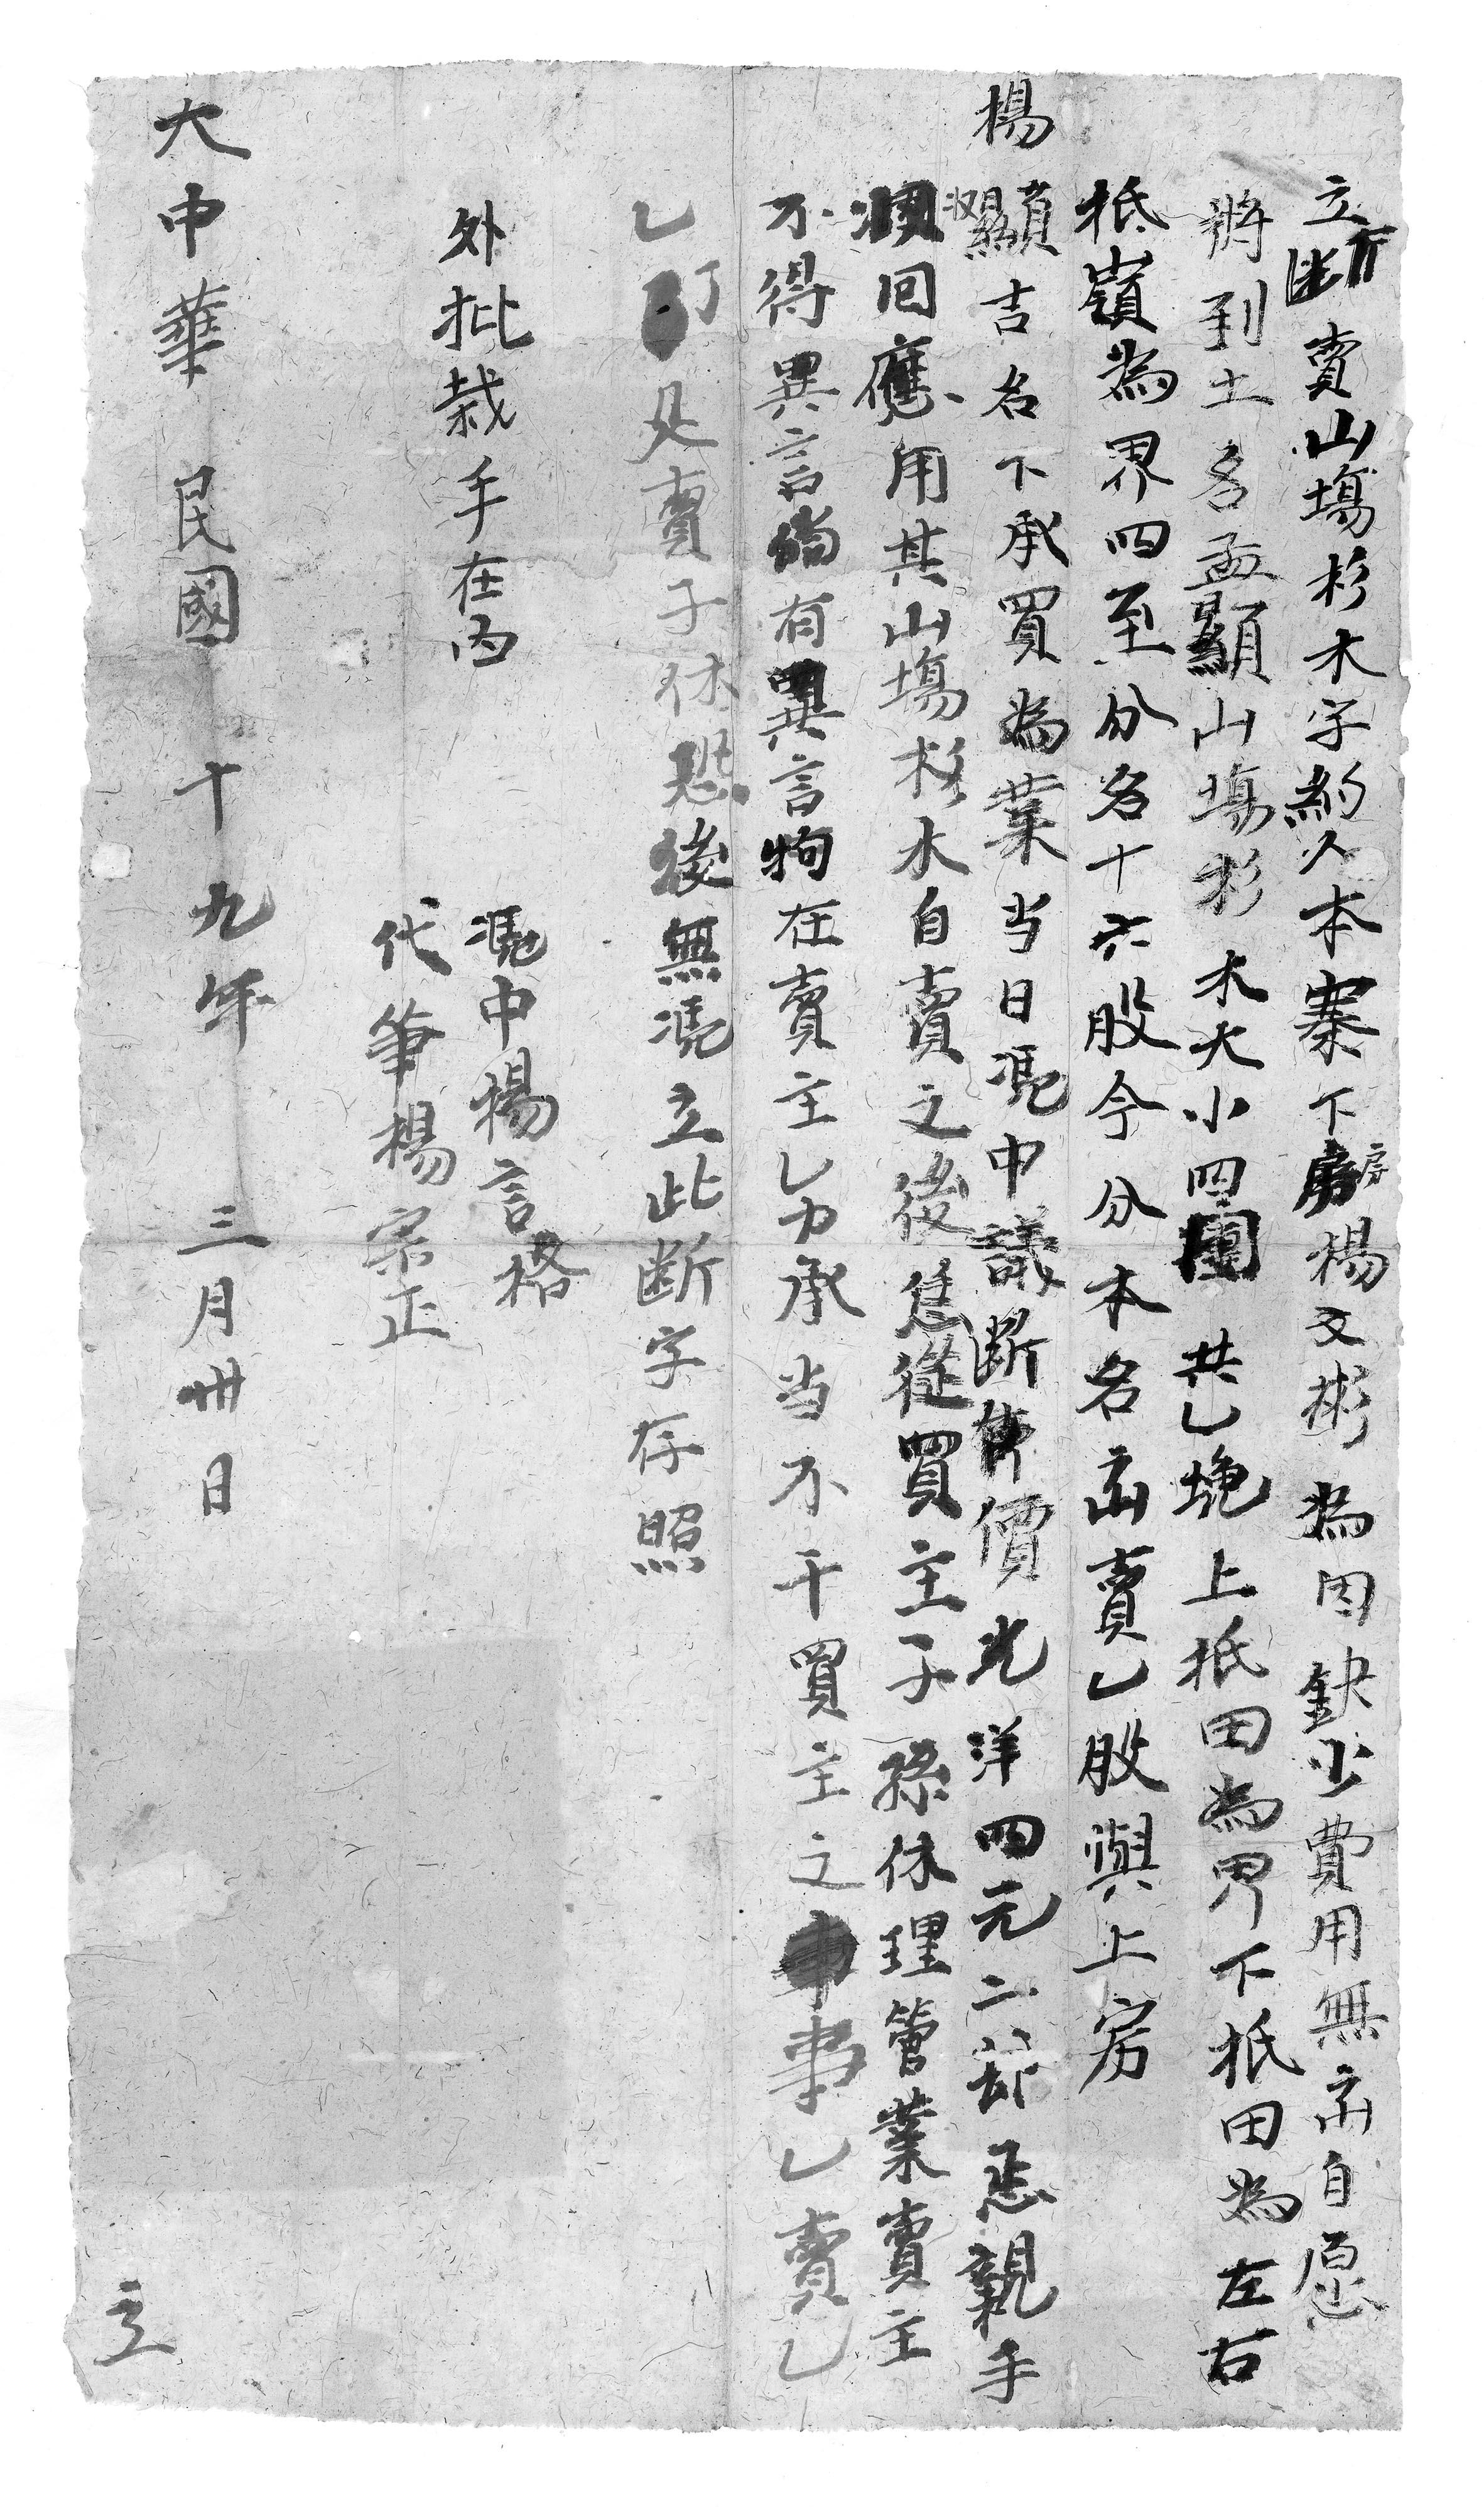 立断賣山塲杉木字約人本寨下房楊文彬為因缺少費用無齐自愿
將到土名孟顯山塲杉木大小四團共乚塊上抵田為界下抵田為左右
抵嶺為界四至分名十六股今分本名齐賣乚股與上房
楊顯吉名下承買為業当日慿中議断價光洋四元二卲悉親手
收回應用其山塲杉木自賣之後隹從買主子孫休理管業賣主
不得異言倘有異言拘在賣主乚力承当不干買主之事乚賣乚
乚了父賣子休恐後無慿立此断字存照
外批栽手在內
慿中楊言格
代筆楊宗正
大中華民國十九年三月卅日 立